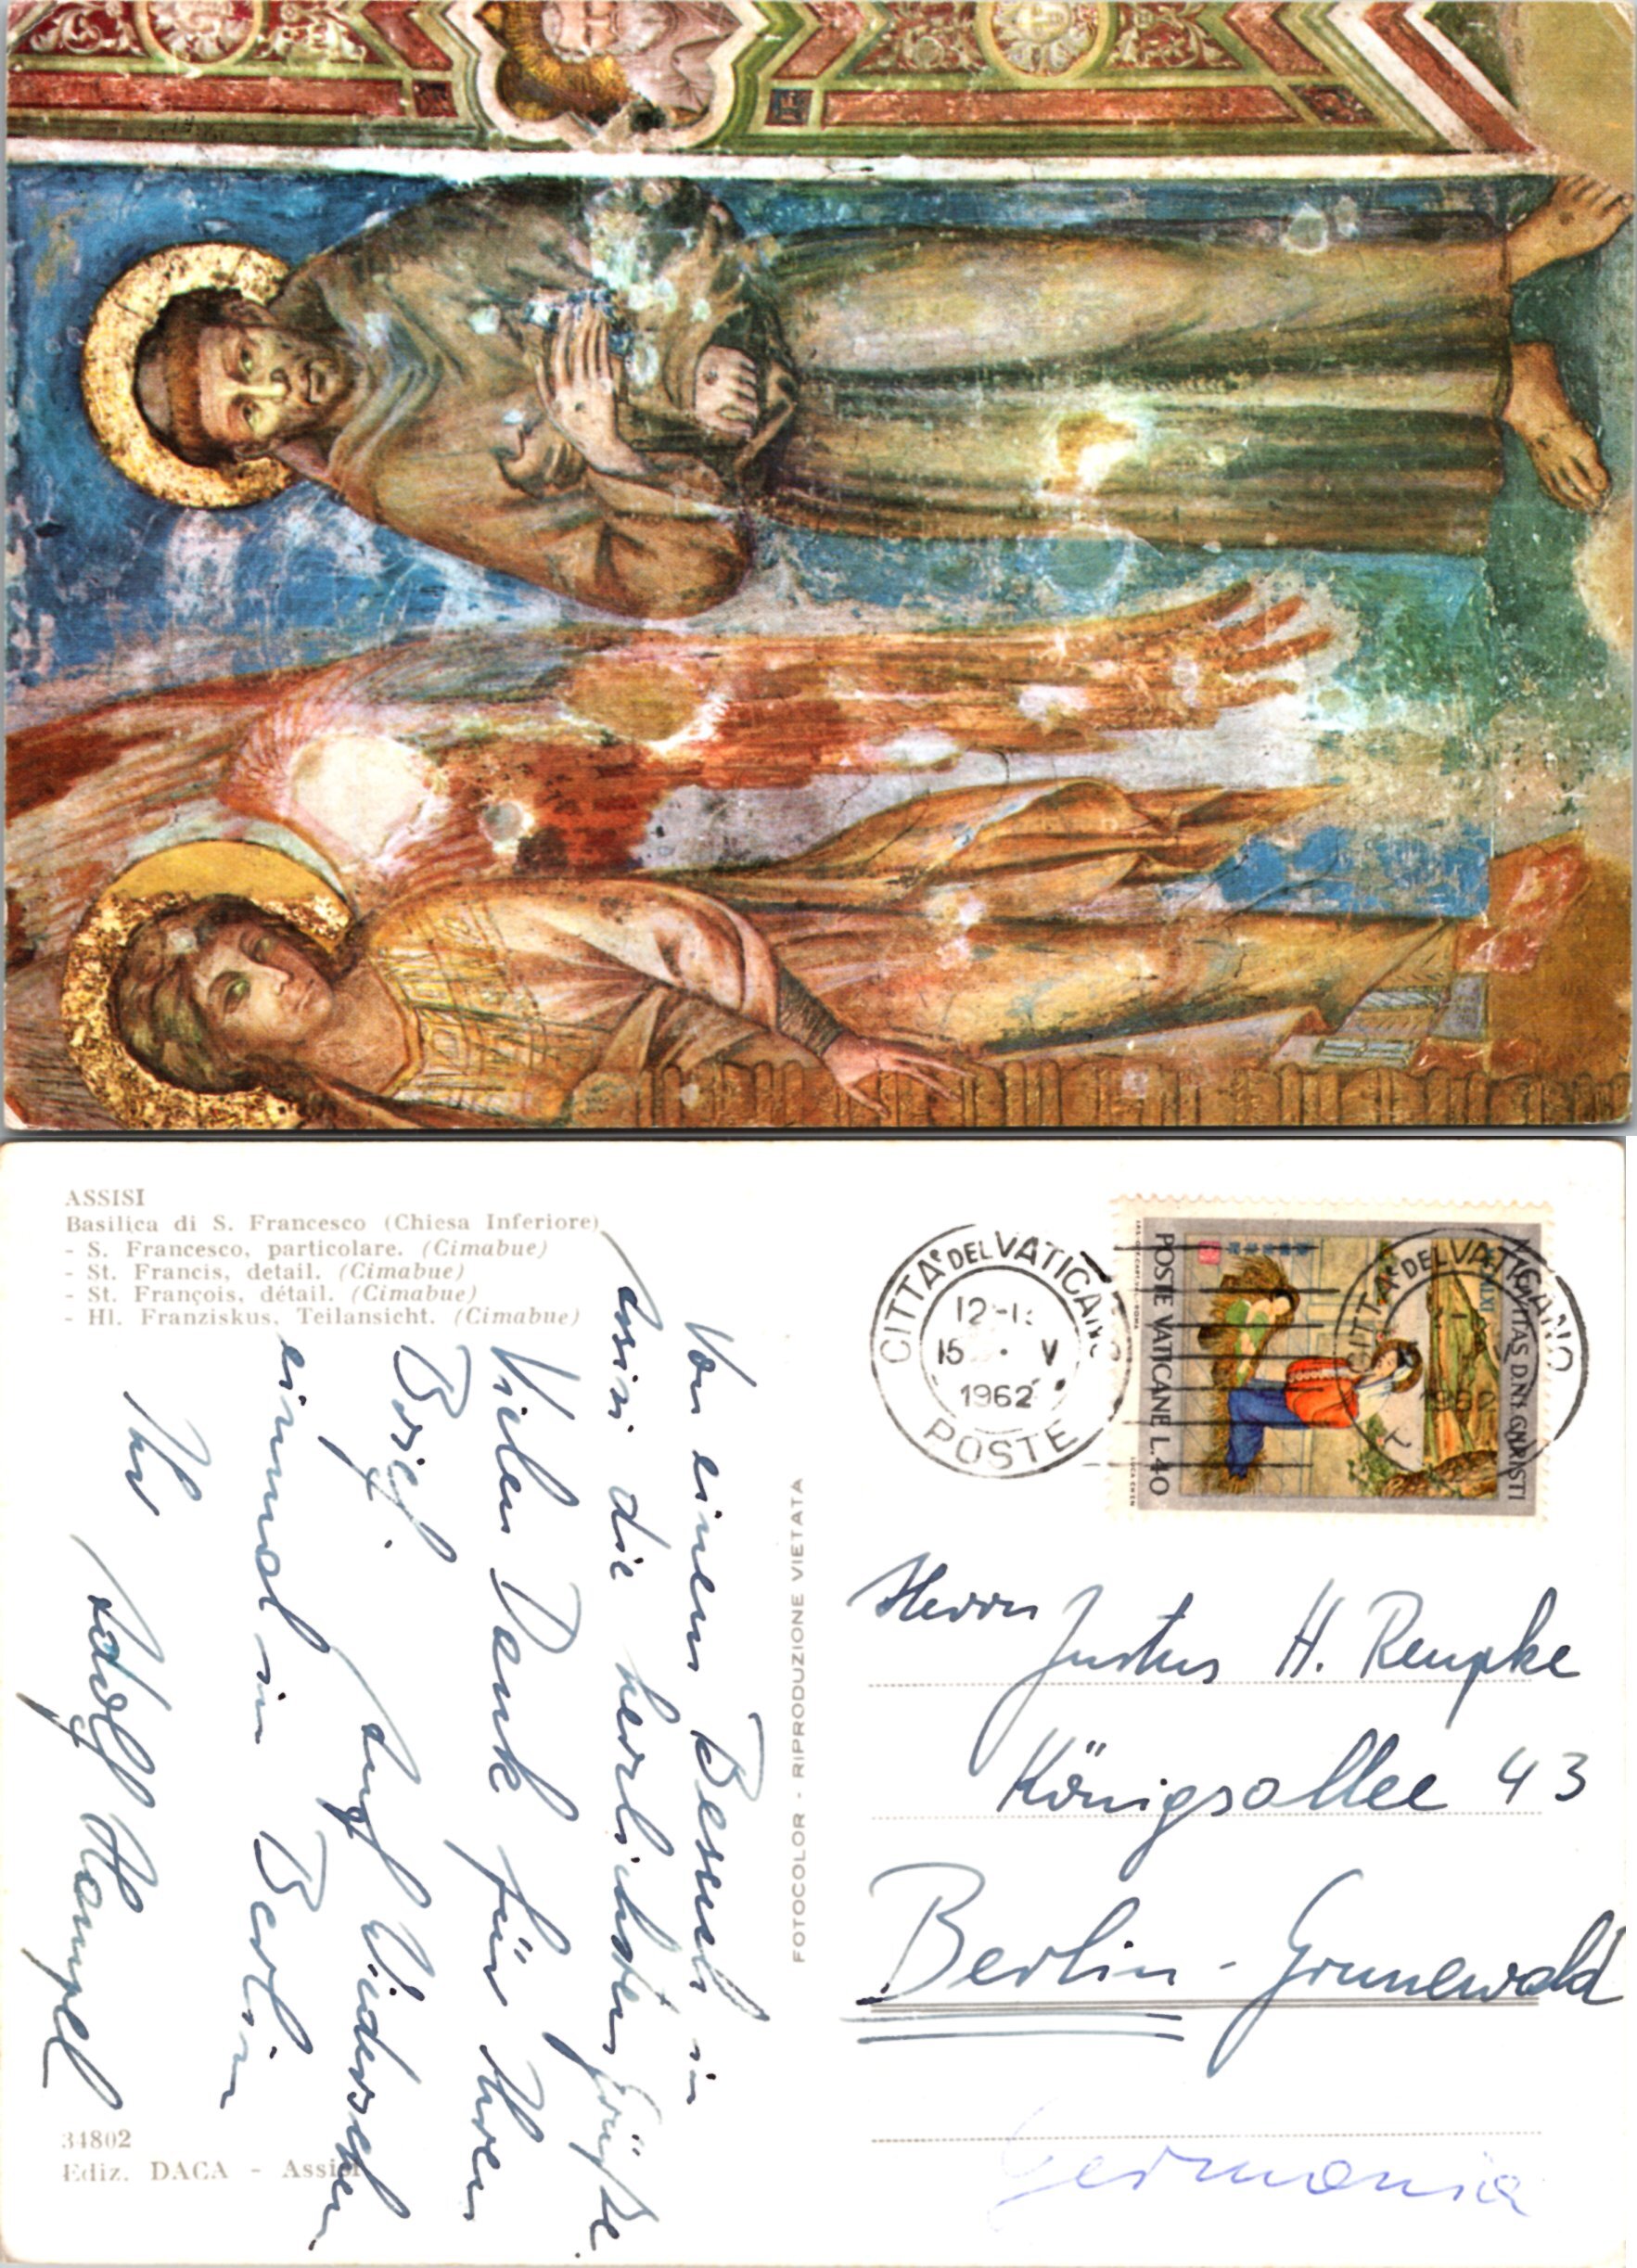 ASSISI
Basilica di S. Francesco (Chiesa Inferiore)
- S. Francesco, particolare. (Cimabue)
- St. Francis, detail. (Cimabue)
- St. François, détail. (Cimabue)
- Hl. Franziskus, Teilansicht. (Cimabue)
Von einem Besuch in
Assisi die herzlichsten Grüße.
Vielen Dank für Ihren
Brief.
Auf Wiedersehen
einmal in Berlin
Ihr
Adolf Hampel
34802
Ediz. DACA - Assisi
FOTOCOLOR - RIPRODUZIONE VIETATA
CITTÀ DEL VATICANO
15 V
1962
POSTE
CITTÀ DEL VATICANO
POSTE VATICANE L. 40
NATIVITAS D.N.I. CHRISTI
LUCA CHEN
Herrn
Justus H. Rempke
Königsallee 43
Berlin - Grunewald
Germania